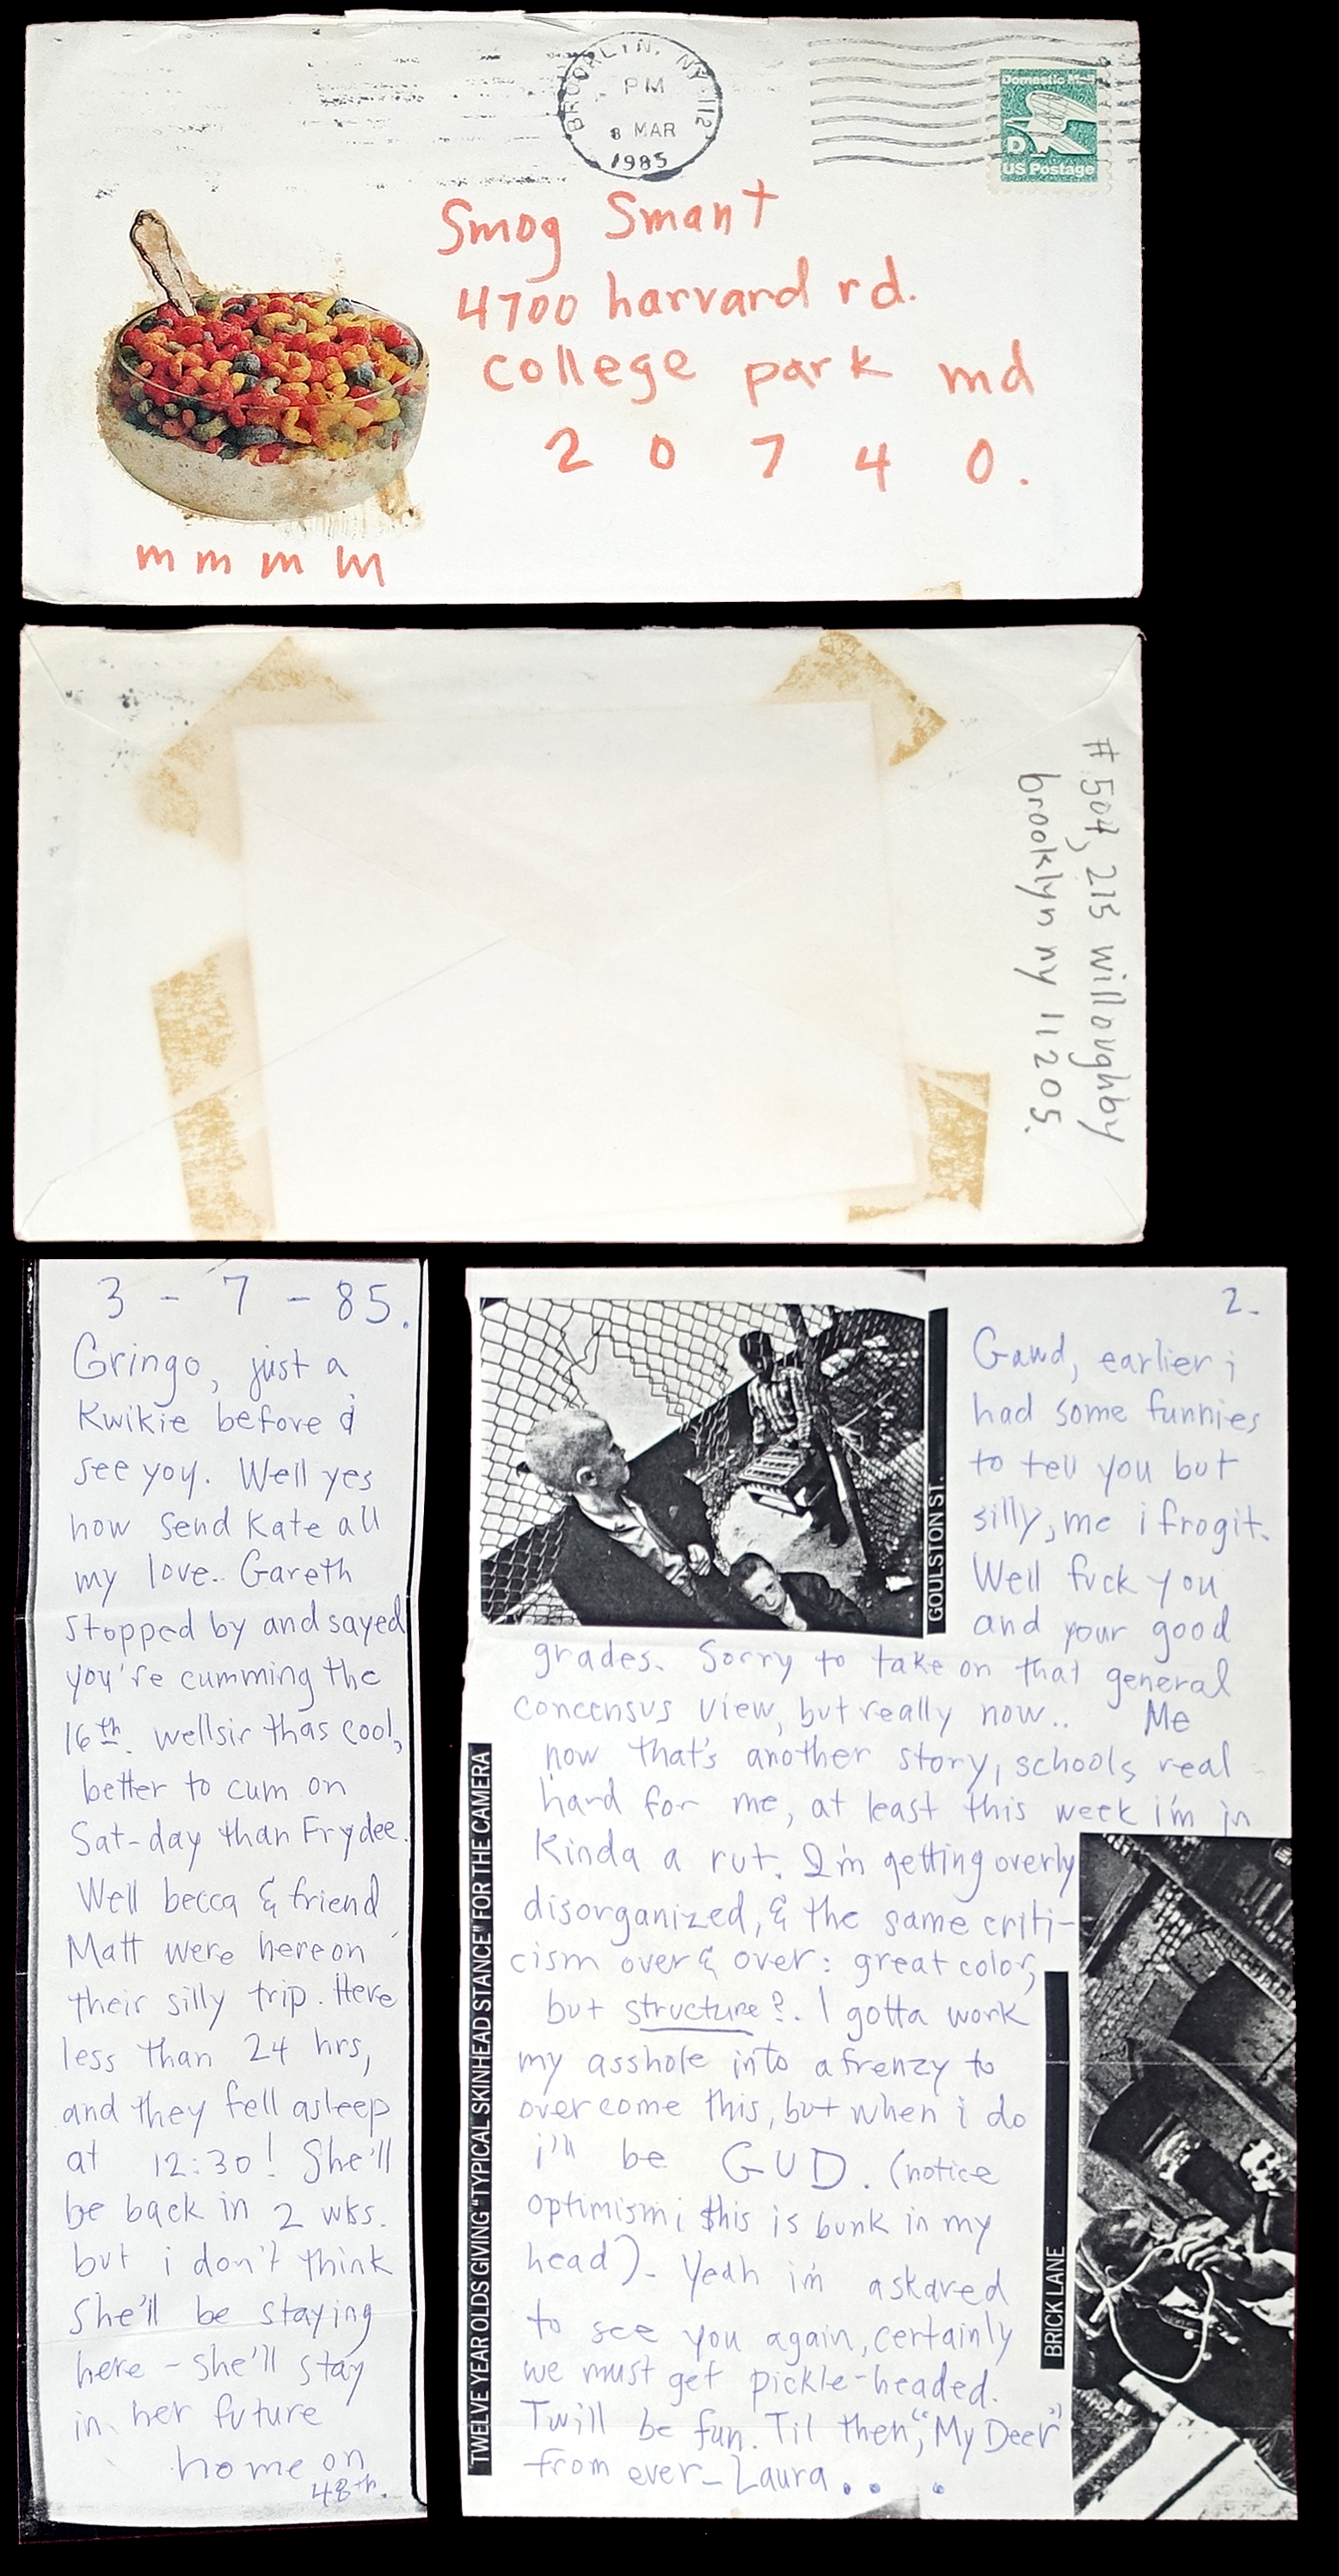 BROOKLYN, NY 112
PM
8 MAR
1985
Domestic Mail
D
US Postage
Smog Smant
4700 harvard rd.
college park md
2 0 7 4 0.
m m m m
# 504, 215 willoughby
brooklyn ny 11205.
3 - 7 - 85.
Gringo, just a
Kwikie before i
see you. Well yes
now send Kate all
my love. Gareth
stopped by and sayed
you're cumming the
16th. wellsir thas cool,
better to cum on
Sat-day than Frydee.
Well becca & friend
Matt were here on
their silly trip. Here
less than 24 hrs,
and they fell asleep
at 12:30! She'll
be back in 2 wks.
but i don't think
she'll be staying
here - she'll stay
in her future
home on
48th.
2.
Gawd, earlier i
had some funnies
to tell you but
silly, me i frogit.
Well fuck you
and your good
grades. Sorry to take on that general
concensus view, but really now.. Me
now that's another story, schools real
hard for me, at least this week i'm in
Kinda a rut. I'm getting overly
disorganized, & the same criti-
cism over & over: great color,
but structure?. I gotta work
my asshole into a frenzy to
overcome this, but when i do
i'll be GUD. (notice
optimism; this is bunk in my
head). Yeah i'm askared
to see you again, certainly
we must get pickle-headed.
Twill be fun. Til then, "My Deer"
from ever- Laura . . .
GOULSTON ST.
TWELVE YEAR OLDS GIVING "TYPICAL SKINHEAD STANCE" FOR THE CAMERA
BRICK LANE